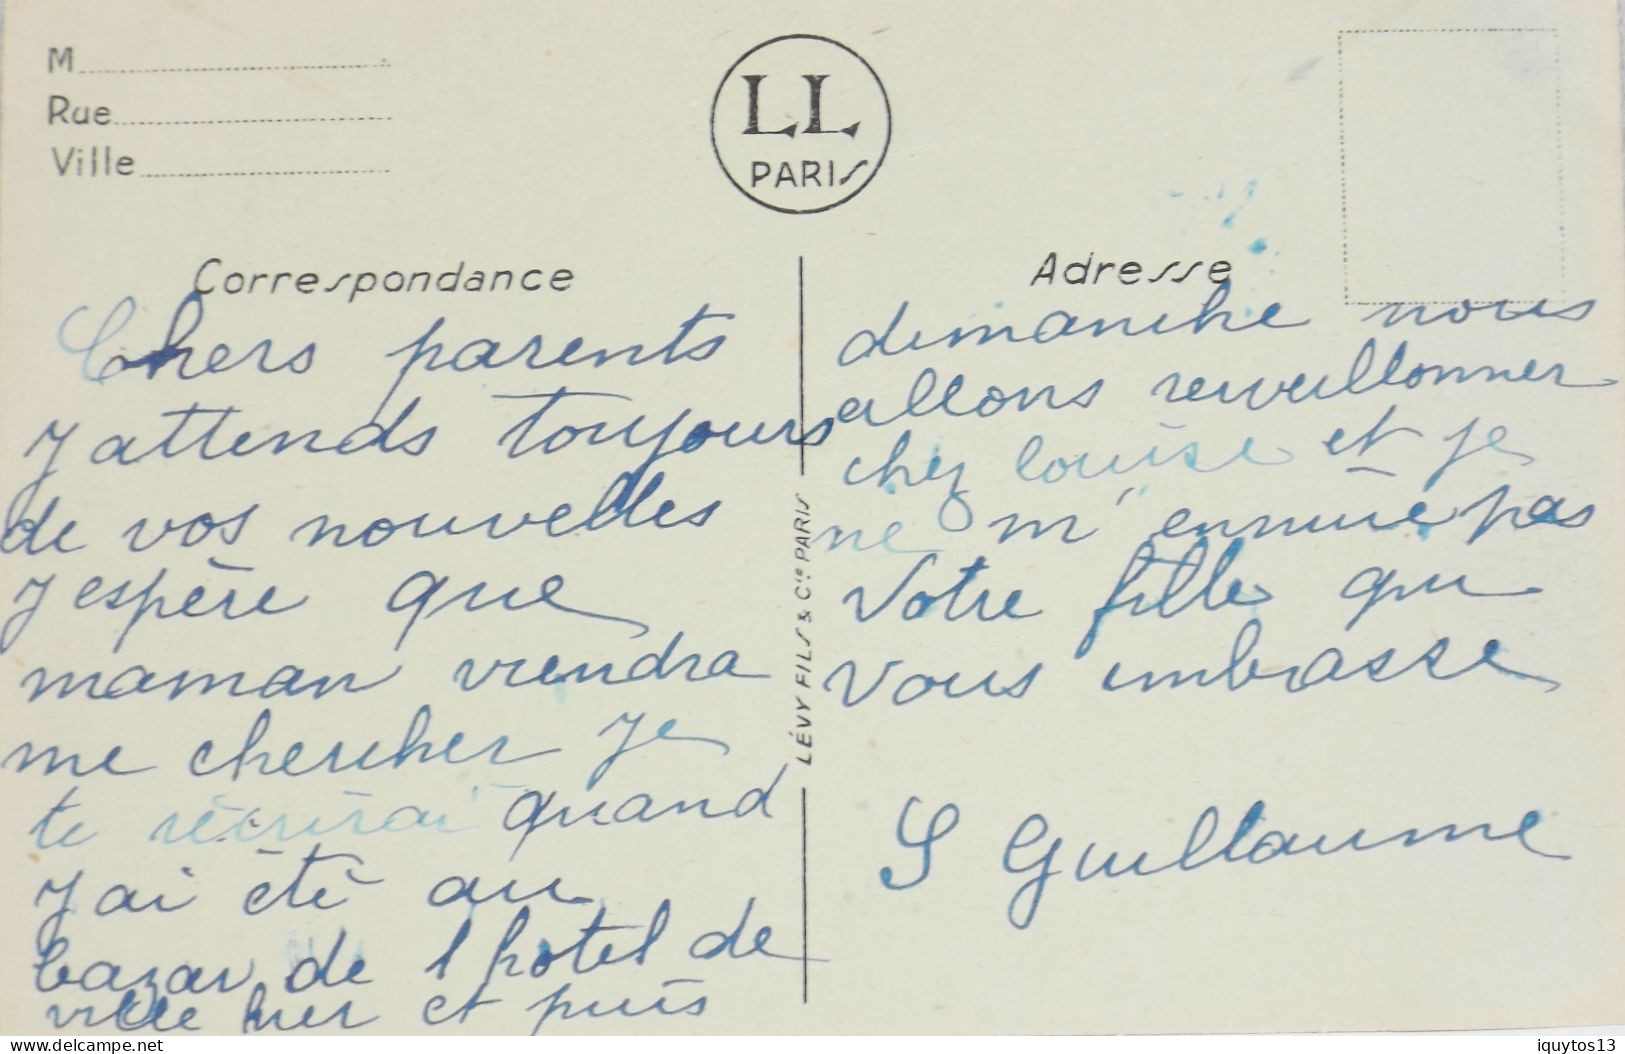 M
Rue
Ville
LL
PARIS
Correspondance
Chers parents
J attends toujours
de vos nouvelles
J espère que
maman viendra
me chercher Je
te récrirai quand
J ai été au
bazar de l hotel de
ville hier et puis
LÉVY FILS & Cie PARIS
Adresse
dimanche nous
allons reveillonner
chez louise et je
ne m'ennuie pas
Votre fille qui
vous embrasse
S Guillaume
www.delcampe.net
iquytos13